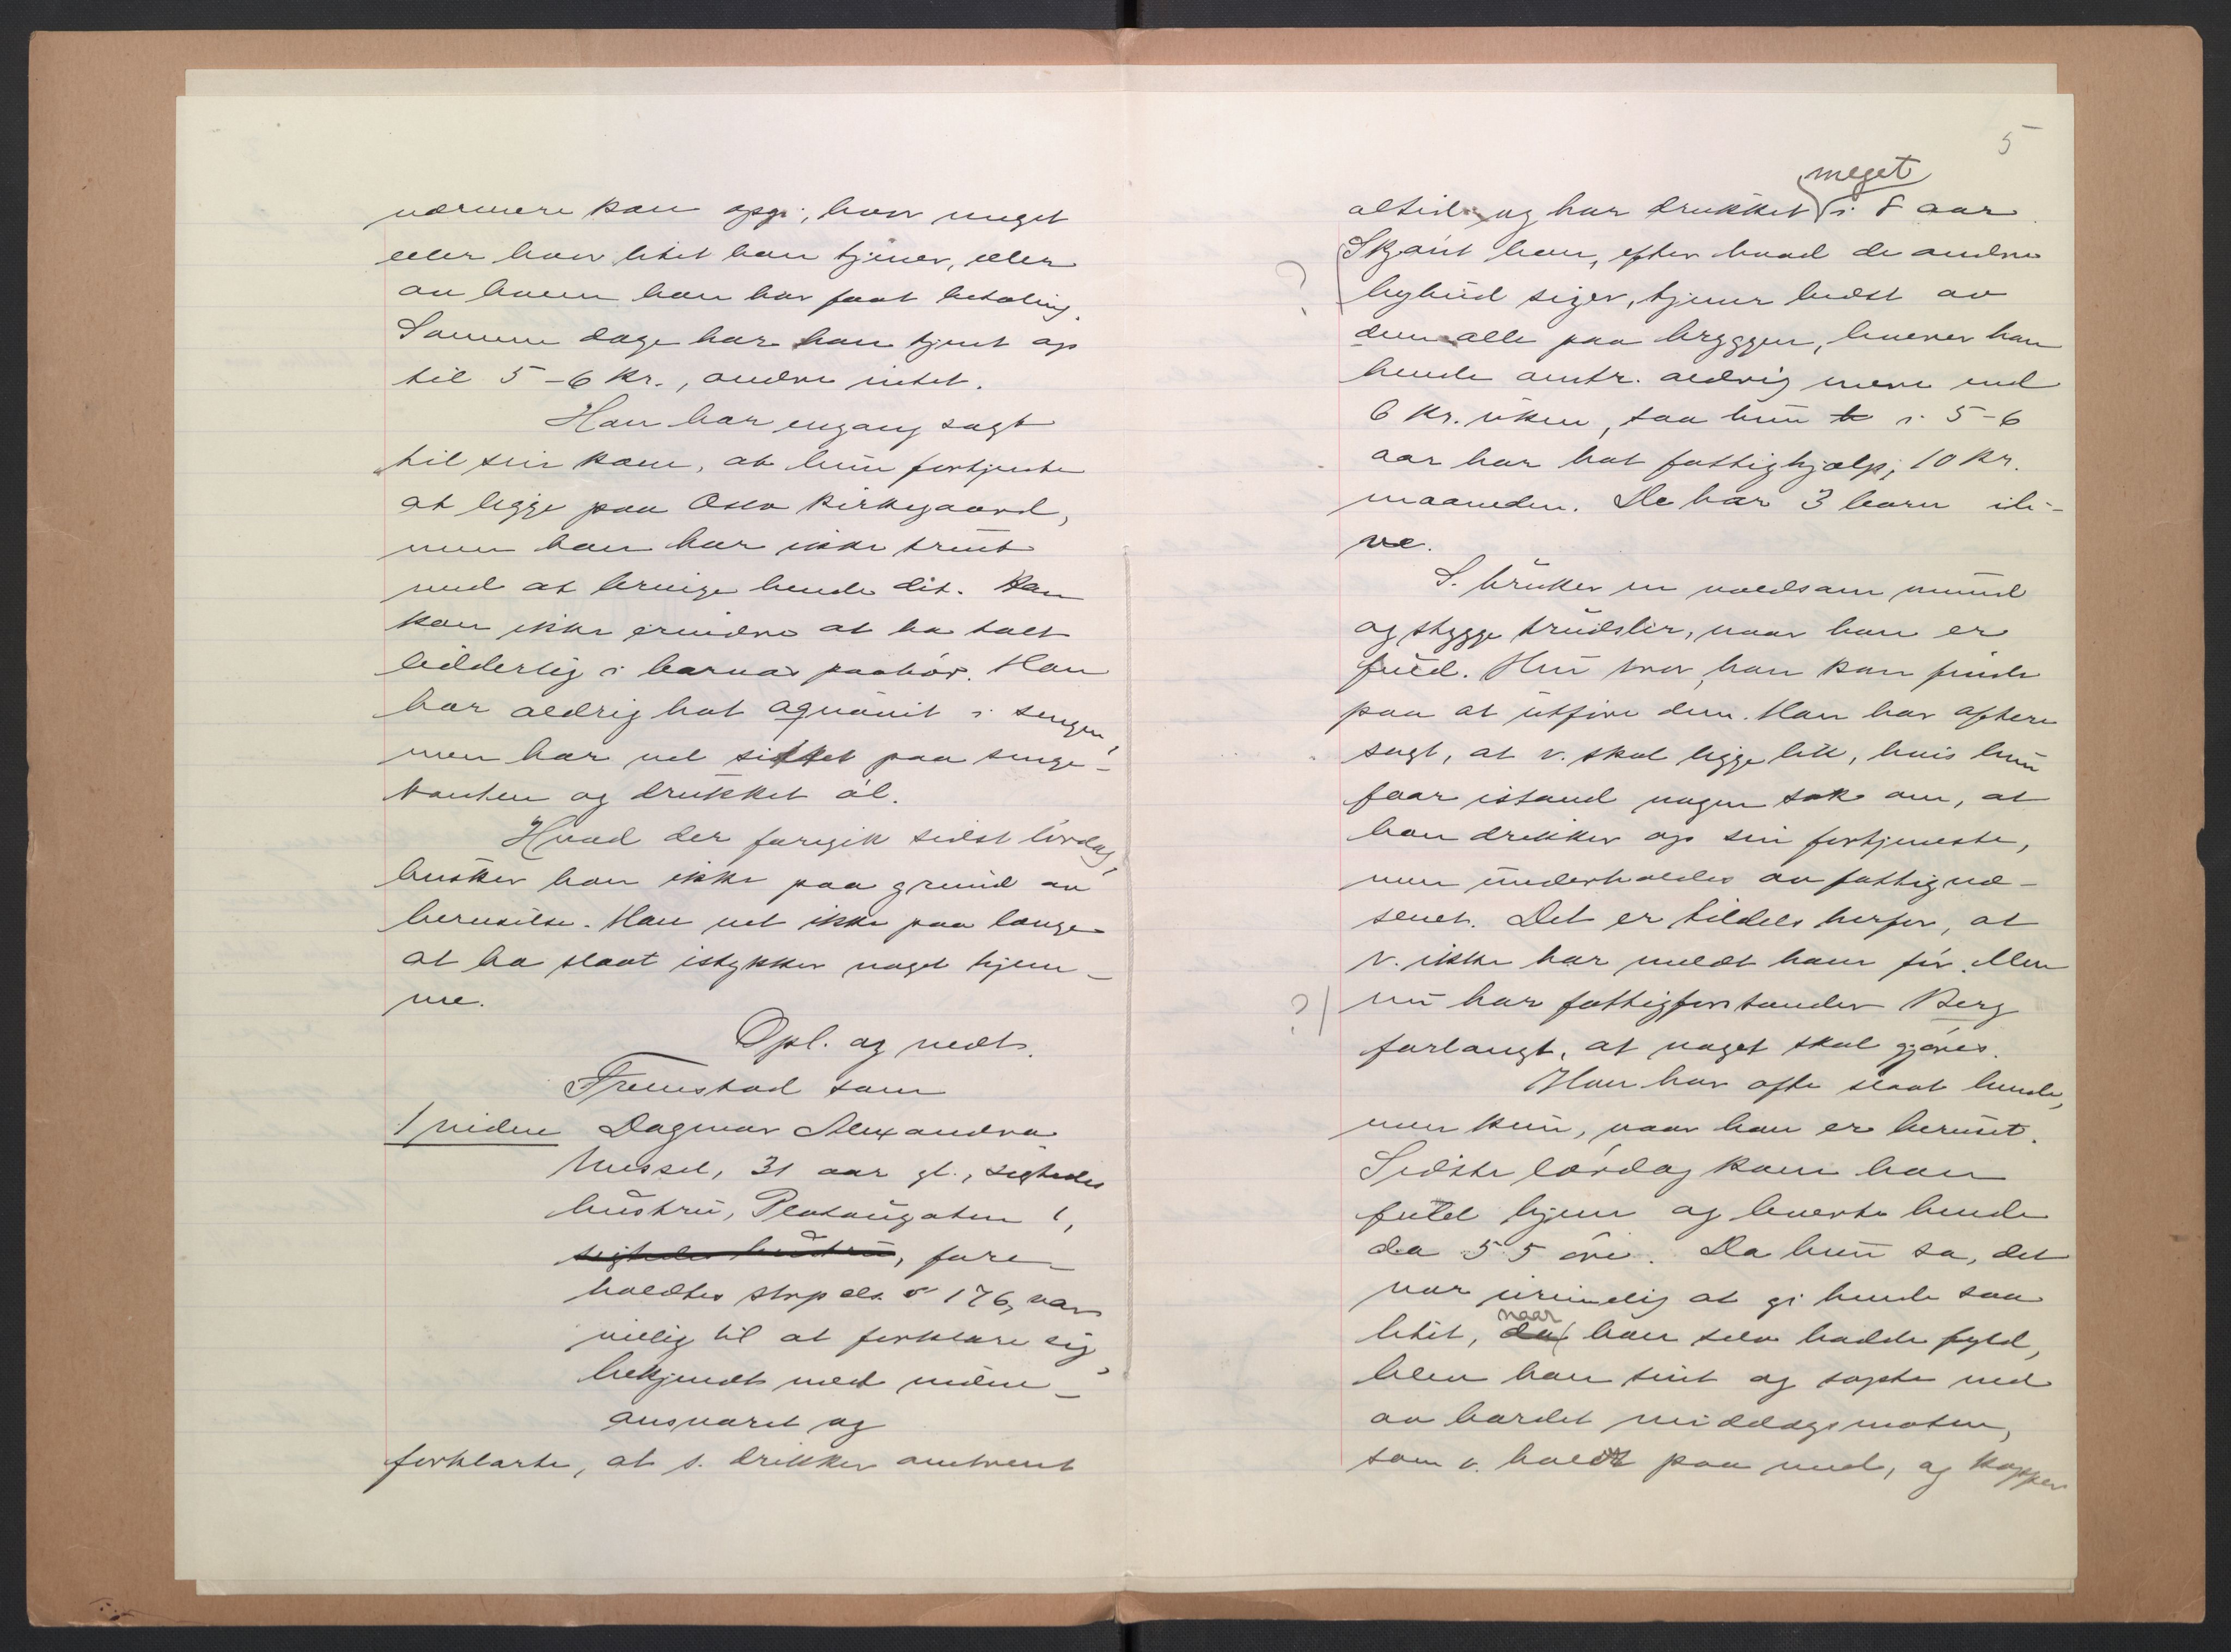 nærmere kan opgi, hvor meget
eller hvor litet han tjener, eller
av hvem han har faat betaling.
Somme dage har han tjent op
til 5-6 kr., andre intet.
Han har engang sagt
til sin kone, at hun fortjente
at ligge paa Oslo kirkegaard,
men han har ikke truet
med at bringe hende dit. Han
kan ikke erindre at ha talt
lidderlig i barnas paahør. Han
har aldrig hat aquavit i sengen,
men har vel sittet paa senge-
kanten og drukket øl.
Hvad der foregik sidst lørdag,
husker han ikke paa grund av
beruselse. Han vet ikke paa lenge
at ha slaat istykker noget hjem-
me.
Opl. og vedt.
Fremstod som
1 vidne Dagmar Alexandra
Nessel, 31 aar gl., sigtedes
hustru, Platougaten 1,
sigtedes hustru, fore-
holdtes strp. els § 176, var
villig til at forklare sig,
bekjendt med vidne-
ansvaret og
forklarte, at s. drikker omtrent
5
meget
altid og har drukket i 8 aar.
Skjønt han, efter hvad de andre
bybud siger, tjener bedst av
dem alle paa bryggen, leverer han
hende omtr. aldrig mere end
6 kr. uken, saa hun i 5-6
aar har hat fattighjælp; 10 kr.
maaneden. De har 3 barn ili-
ve.
S. bruker en voldsom mund
og stygge trudsler, naar han er
fuld. Hun tror, han kan finde
paa at utføre dem. Han har oftere
sagt, at v. skal ligge lik, hvis hun
faar istand nogen sak om, at
han drikker op sin fortjeneste,
men underholdes av fattigvæ-
senet. Det er tildels herfor, at
v. ikke har meldt ham før. Men
? nu har fattigforstander Berg
forlangt, at noget skal gjøres.
Han har ofte slaat hende,
men kun, naar han er beruset.
Sidste lørdag kom han
fuld hjem og leverte hende
da 55 øre. Da hun sa, det
var urimelig at gi hende saa
naar
litet, da han selv hadde fyld,
blev han sint og sopte ned
av bordet middagsmaten,
som v. holdt paa med, og kopper